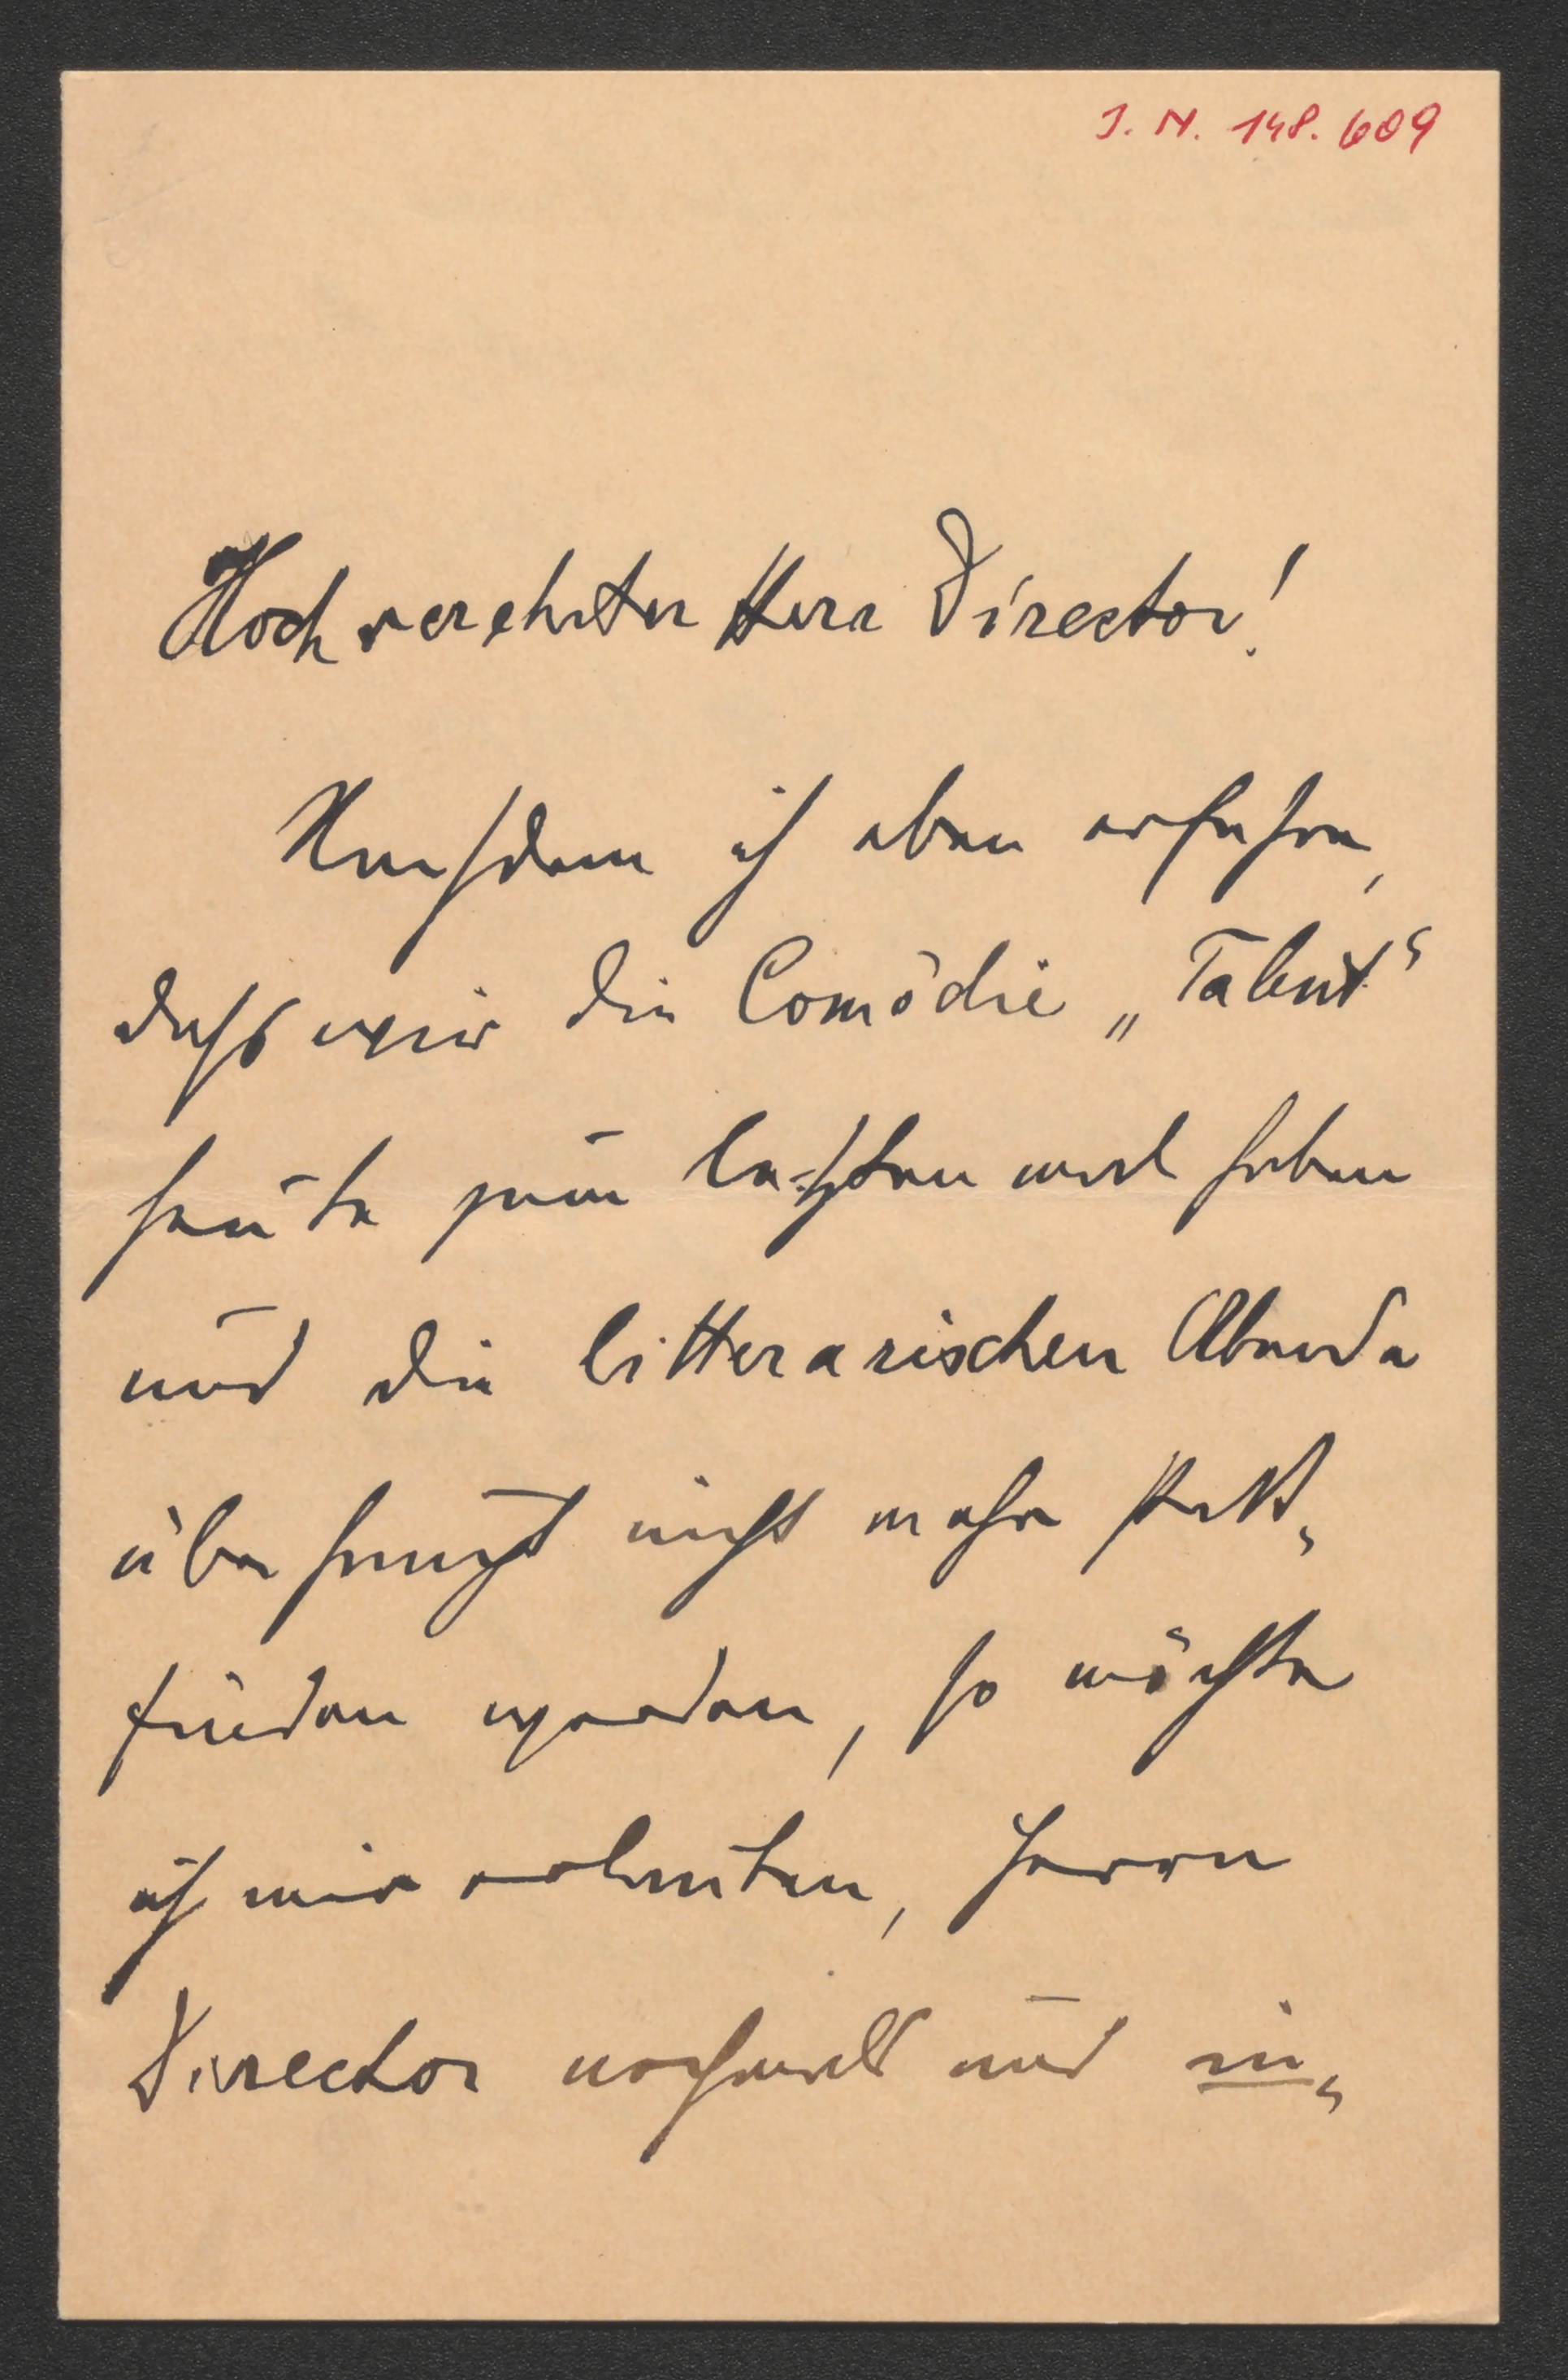 J. N. 148.609
Hochverehrter Herr Director!
Nachdem ich eben erfahre,
daß wir die Comödie „Talent“
heute zum letzten mal haben
und die litterarischen Abende
überhaupt nicht mehr statt-
finden werden, so möchte
ich mir erlauben, Herrn
Director nochmals und in-